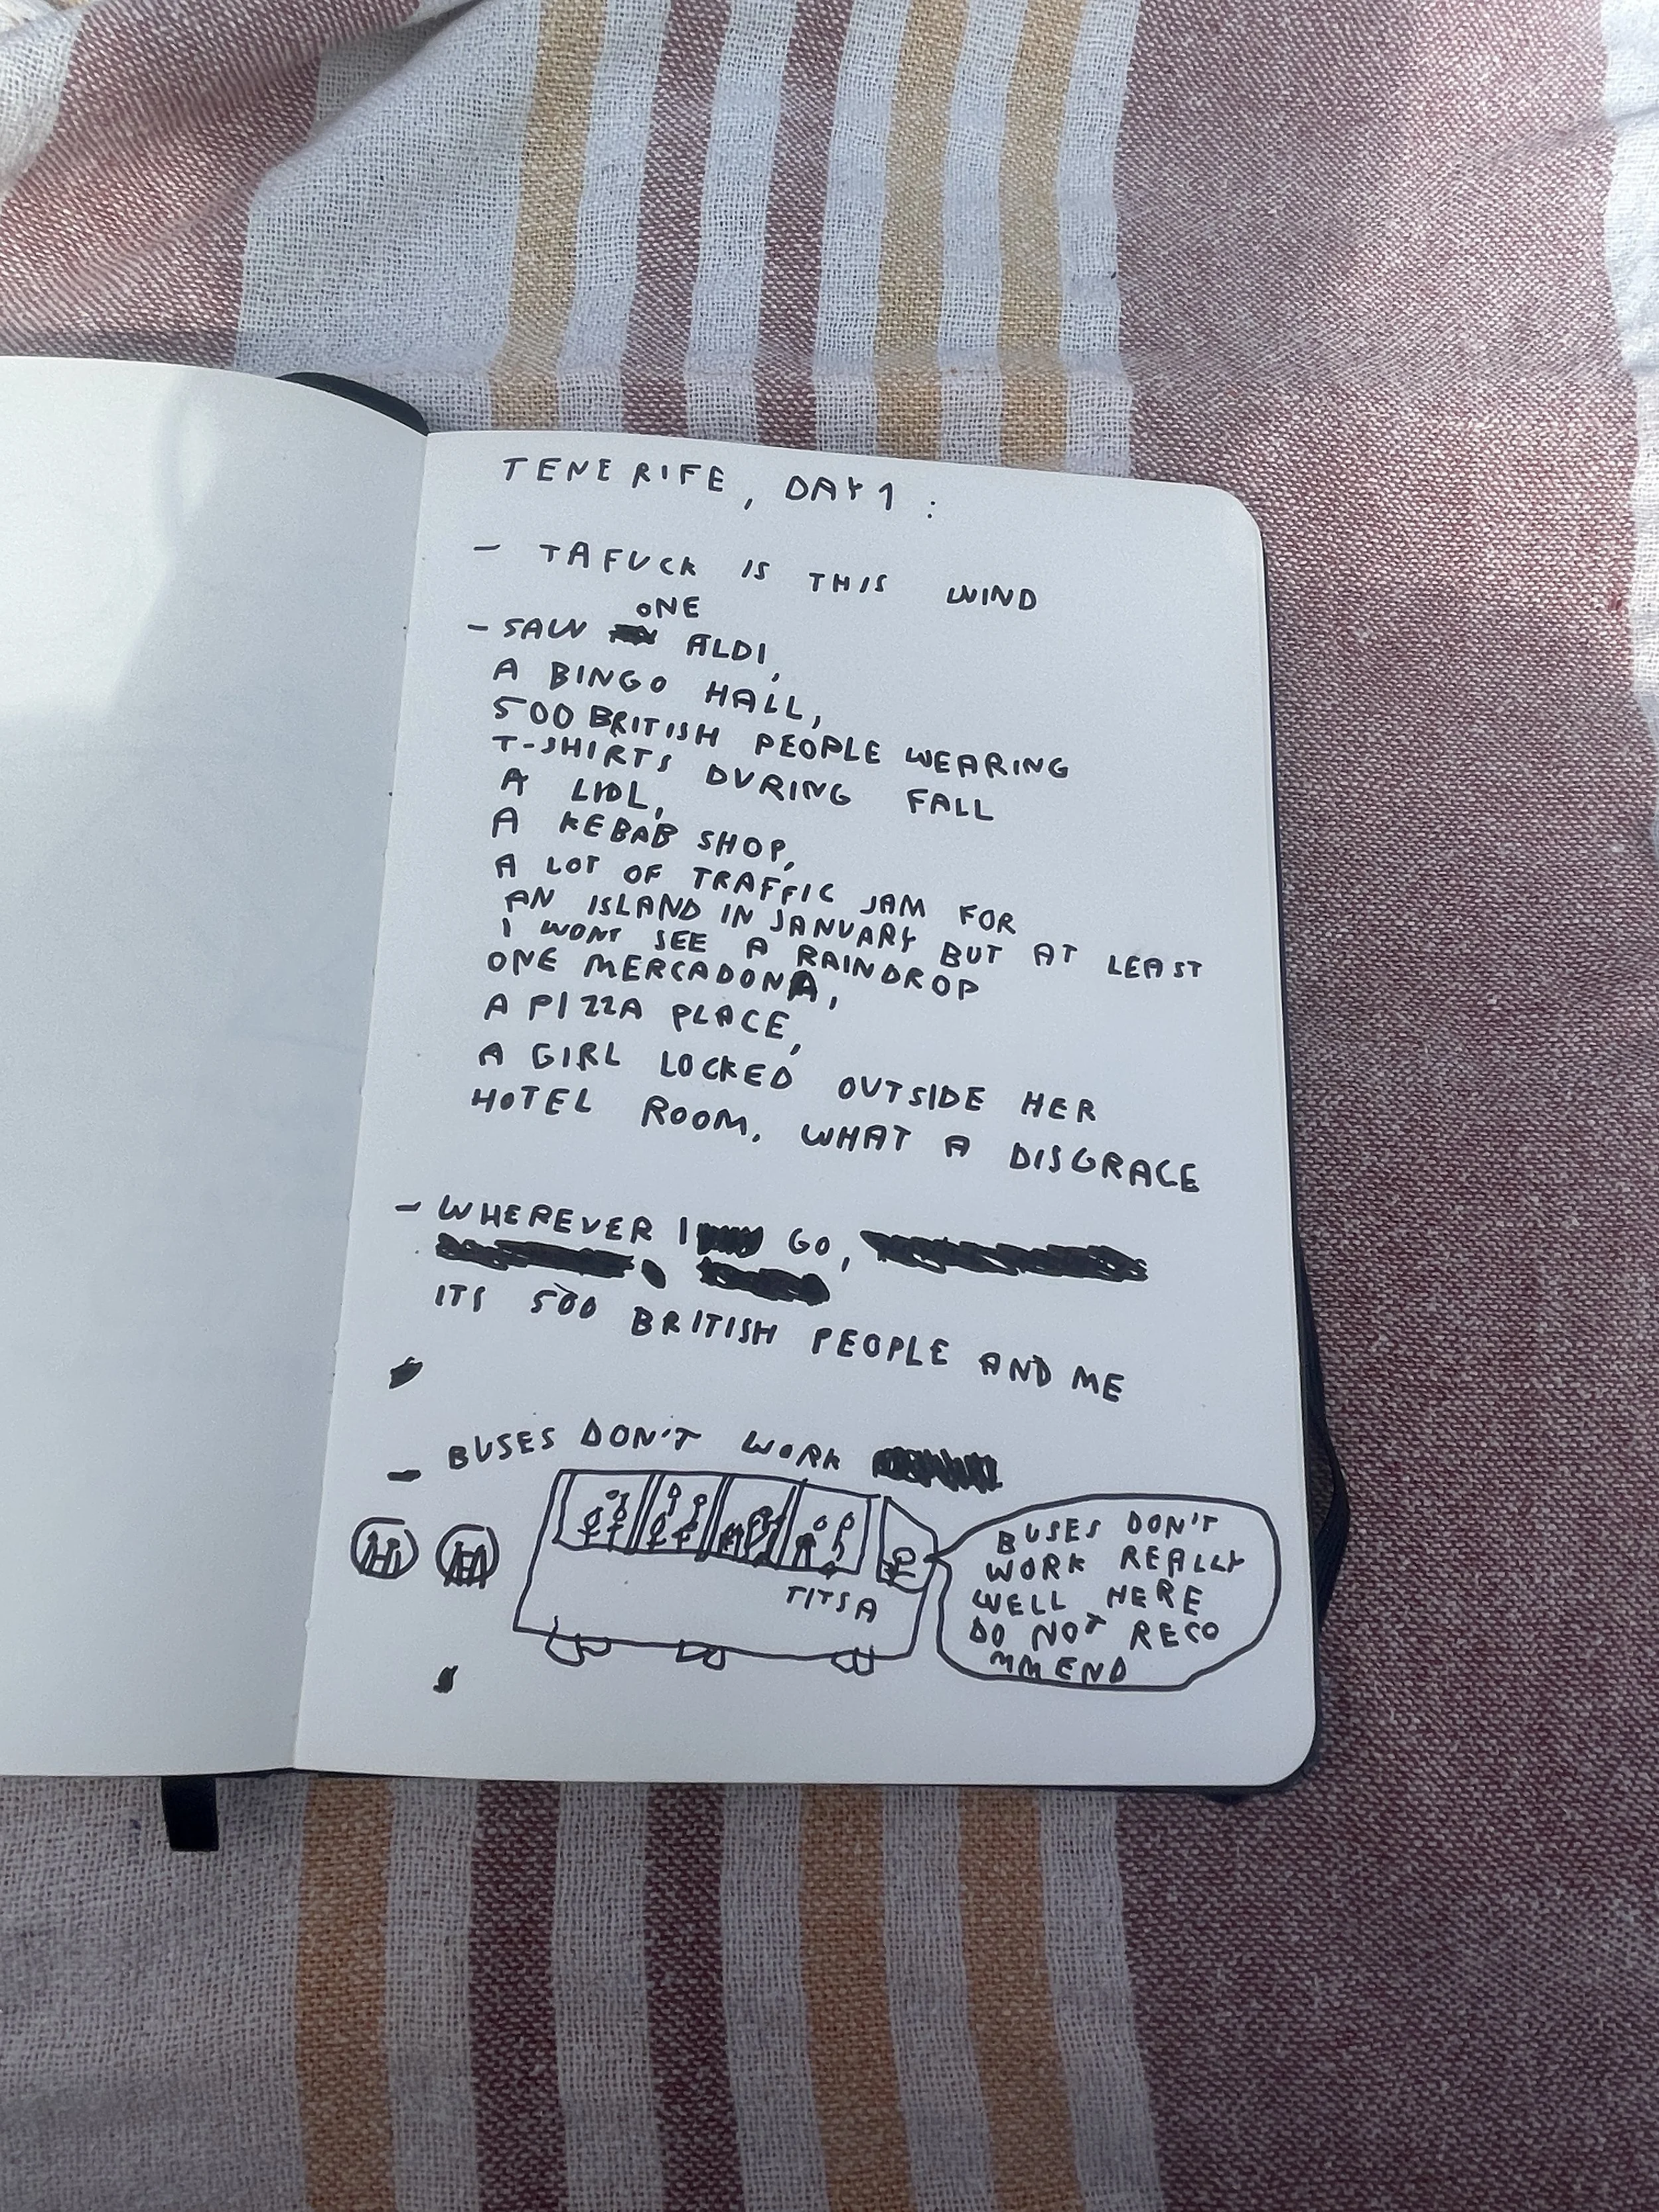 TENERIFE, DAY 1 :
- TAFUCK IS THIS WIND
ONE
- SAW ALDI,
A BINGO HALL,
500 BRITISH PEOPLE WEARING
T-SHIRTS DURING FALL
A LIDL,
A KEBAB SHOP,
A LOT OF TRAFFIC JAM FOR
AN ISLAND IN JANUARY BUT AT LEAST
I WONT SEE A RAINDROP
ONE MERCADONA,
A PIZZA PLACE,
A GIRL LOCKED OUTSIDE HER
HOTEL ROOM. WHAT A DISGRACE
- WHEREVER I GO,
ITS 500 BRITISH PEOPLE AND ME
- BUSES DON'T WORK
TITSA
BUSES DON'T
WORK REALLY
WELL HERE
DO NOT RECO
MMEND